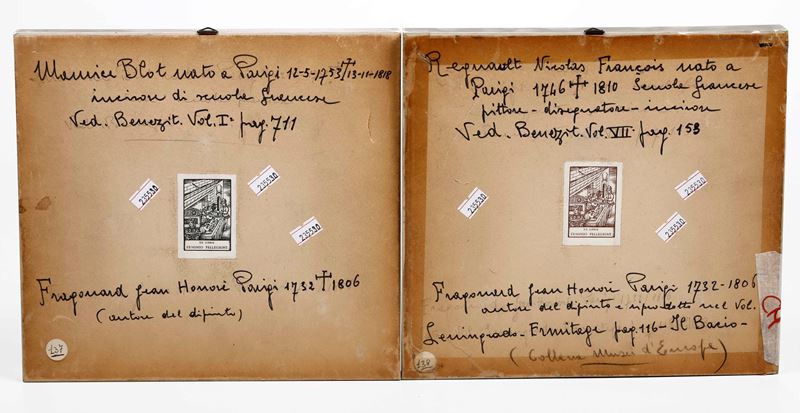 Maurice Blot nato a Parigi 12-5-1753 † 13-11-1818
incisore di scuola francese
Ved. Benezit. Vol. Iº pag. 711
235530
235530
235530
EX LIBRIS
ERMINDO PELLEGRINO
Fragonard Jean Honoré Parigi 1732 † 1806
(autore del dipinto)
137
Regnault Nicolas François nato a
Parigi 1746 † 1810 Scuola francese
pittore - disegnatore - incisore
Ved. Benezit. Vol. VII pag. 153
235530
235530
235530
EX LIBRIS
ERMINDO PELLEGRINO
Fragonard Jean Honoré Parigi 1732-1806
autore del dipinto e riprodotto nel Vol.
Leningrado - Ermitage pag. 116 - Il Bacio -
(Collana Musei d'Europa)
138